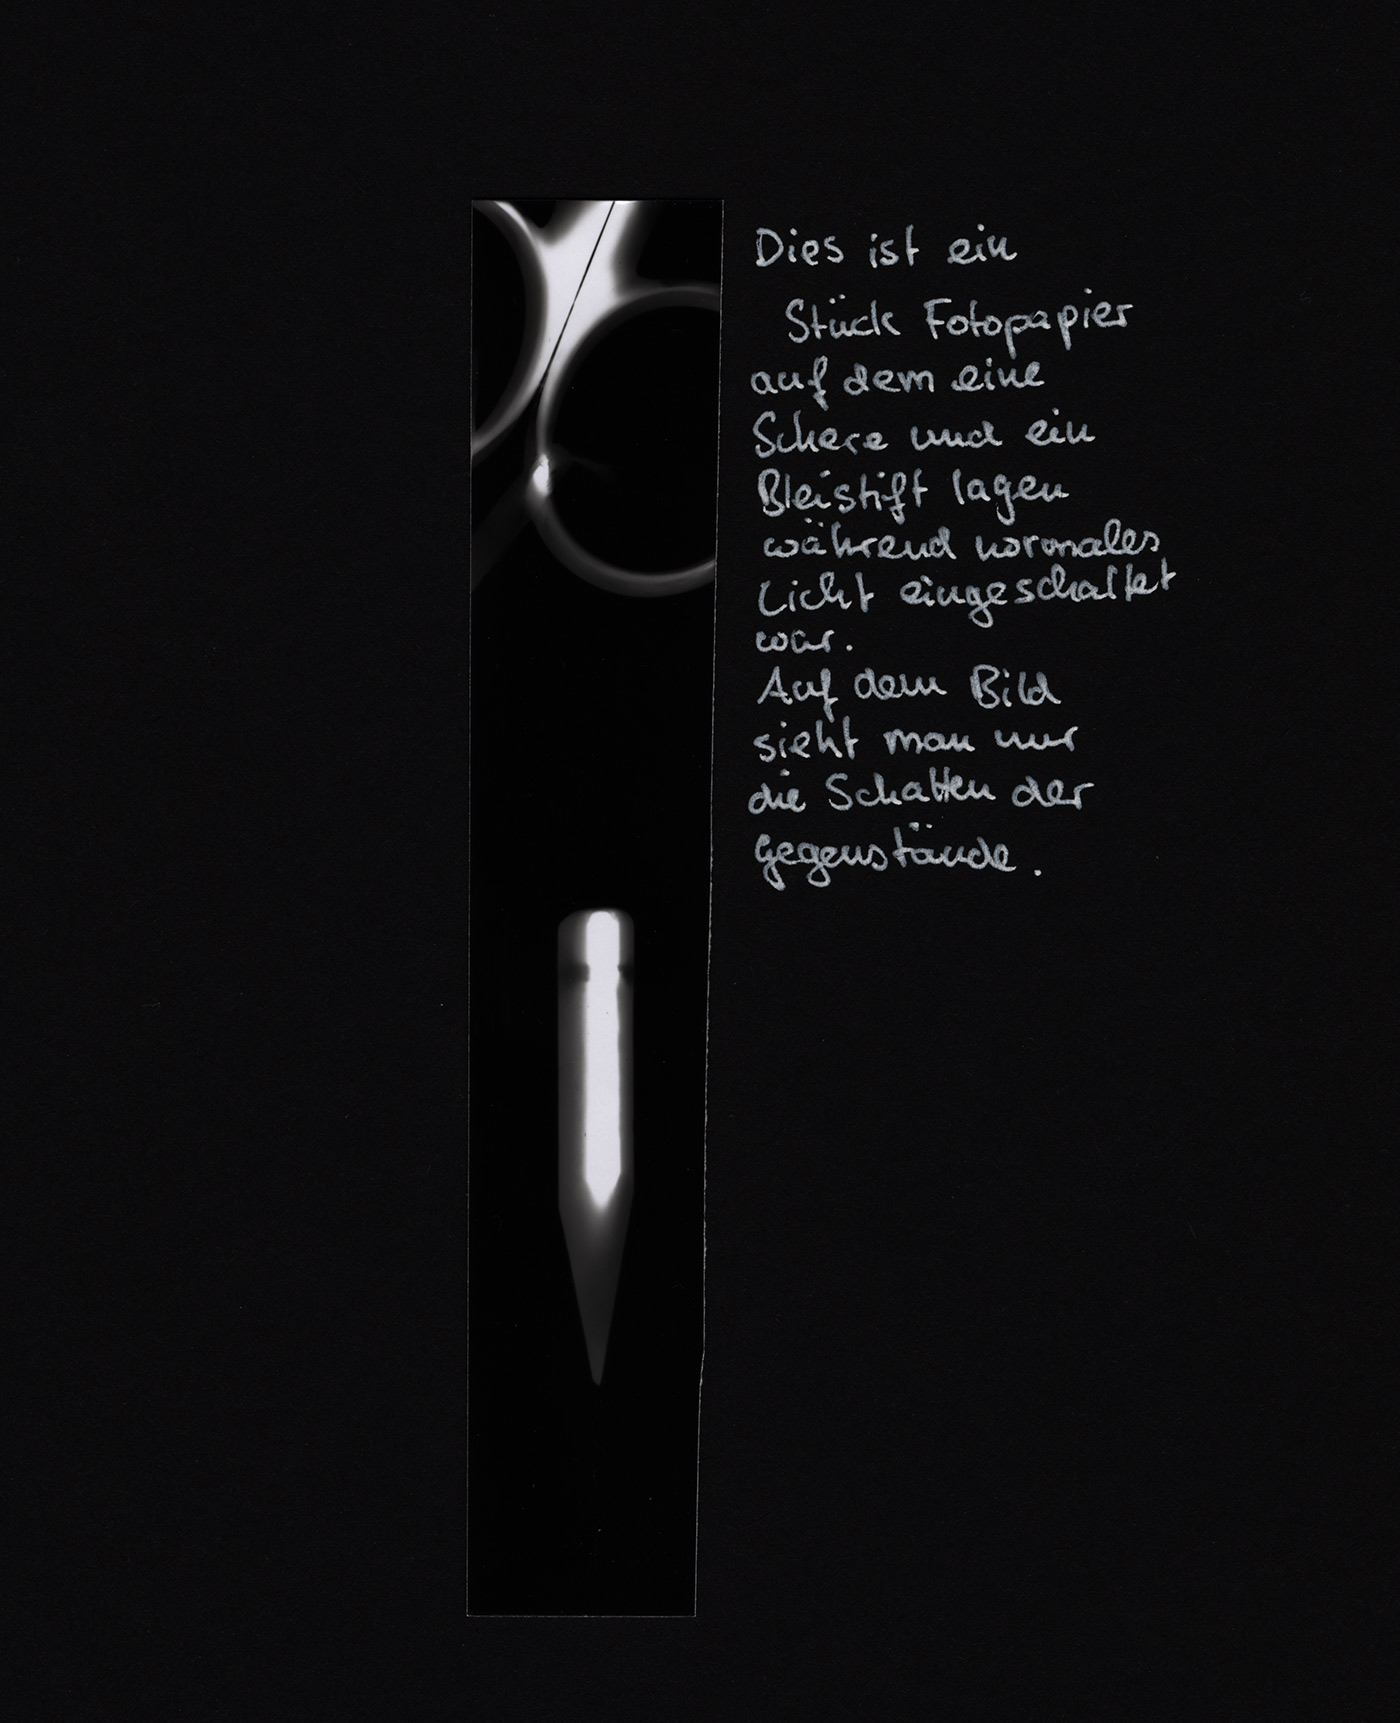 Dies ist ein
Stück Fotopapier
auf dem eine
Schere und ein
Bleistift lagen
während normales
Licht eingeschaltet
war.
Auf dem Bild
sieht man nur
die Schatten der
Gegenstände.